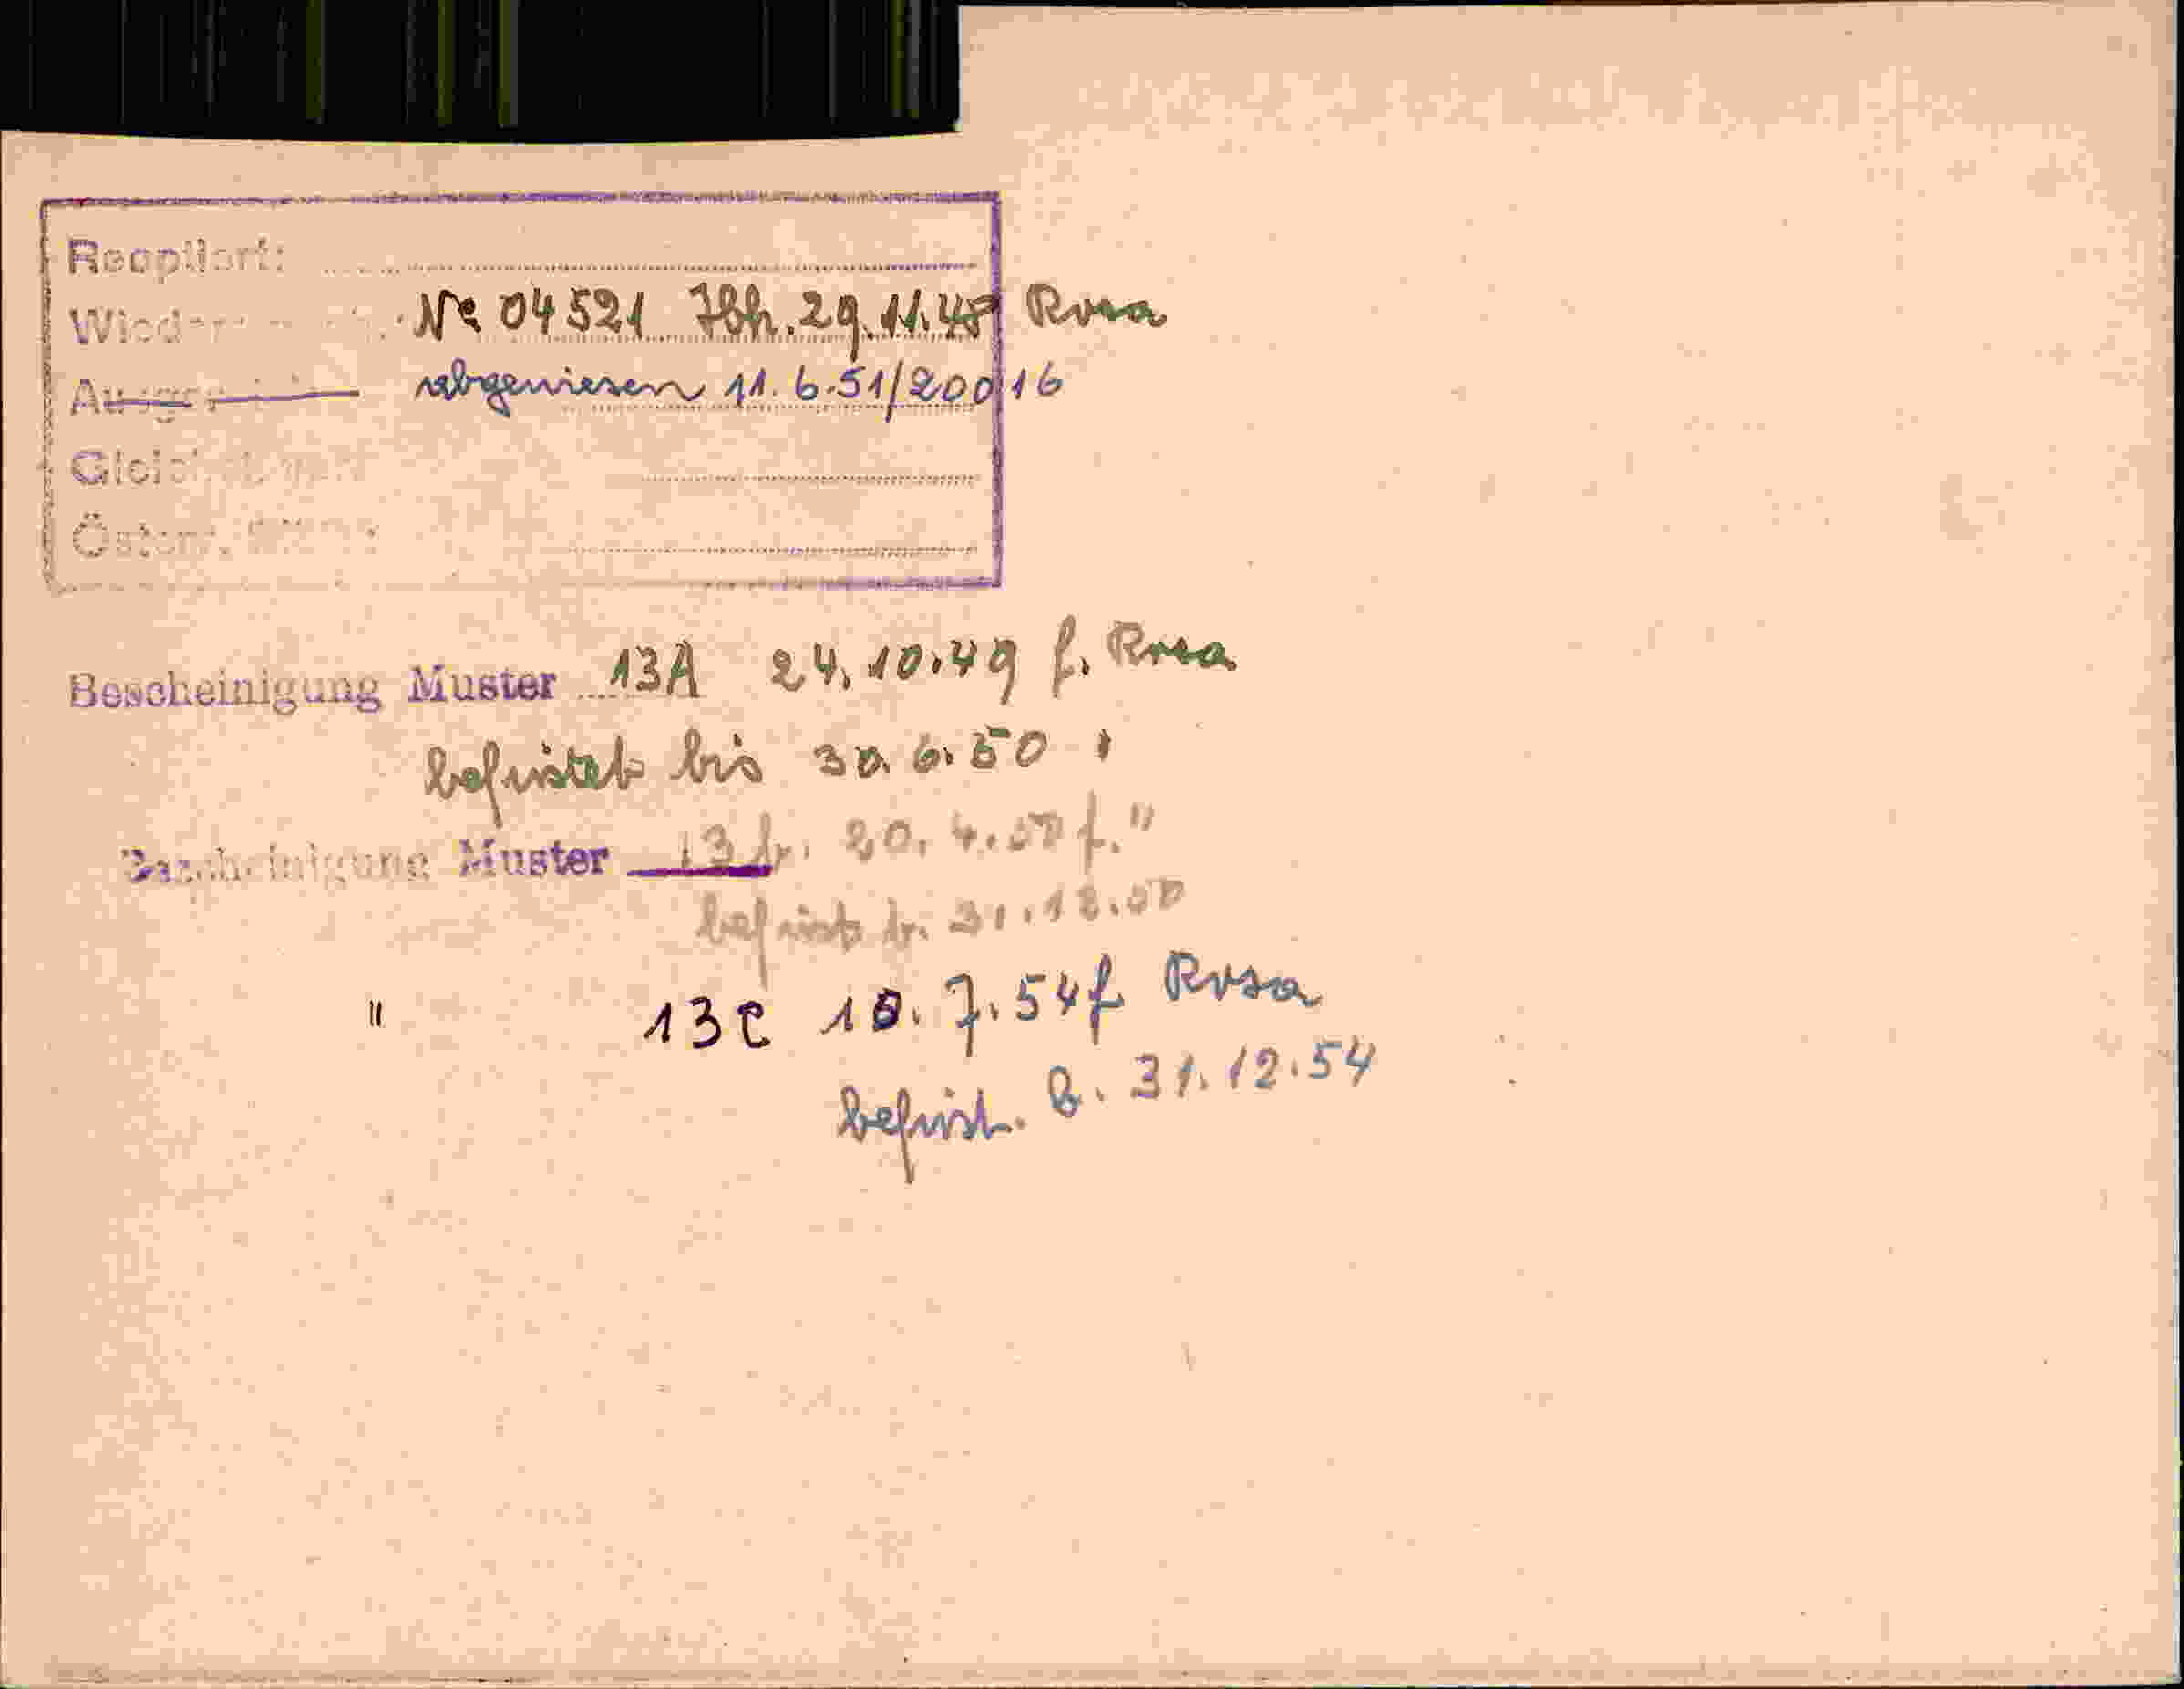 Reoptiert:
Nr 04521 Jbh. 29.11.48 Rosa
abgewiesen 11.6.51/20016
Bescheinigung Muster 13A 24.10.49 f. Rosa
befristet bis 30.6.50
Bescheinigung Muster 13b. 20.4.50 f. "
befrist b. 31.12.50
" 13c 10.7.54 f Rosa
befrist. B. 31.12.54